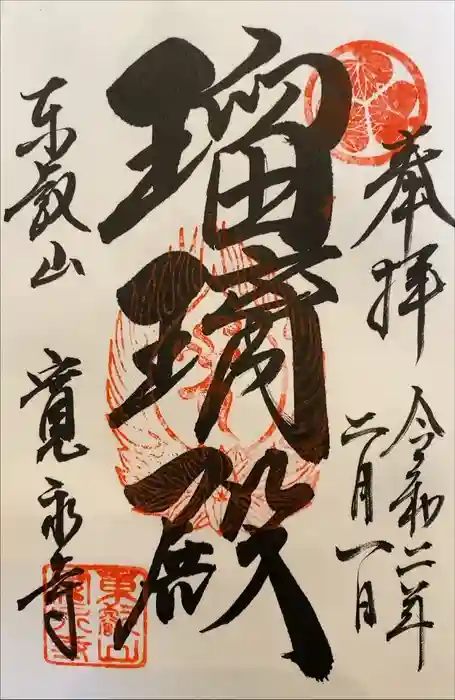 奉拝
令和二年
二月一日
瑠璃殿
东叡山
寛永寺
東叡山
寛永寺